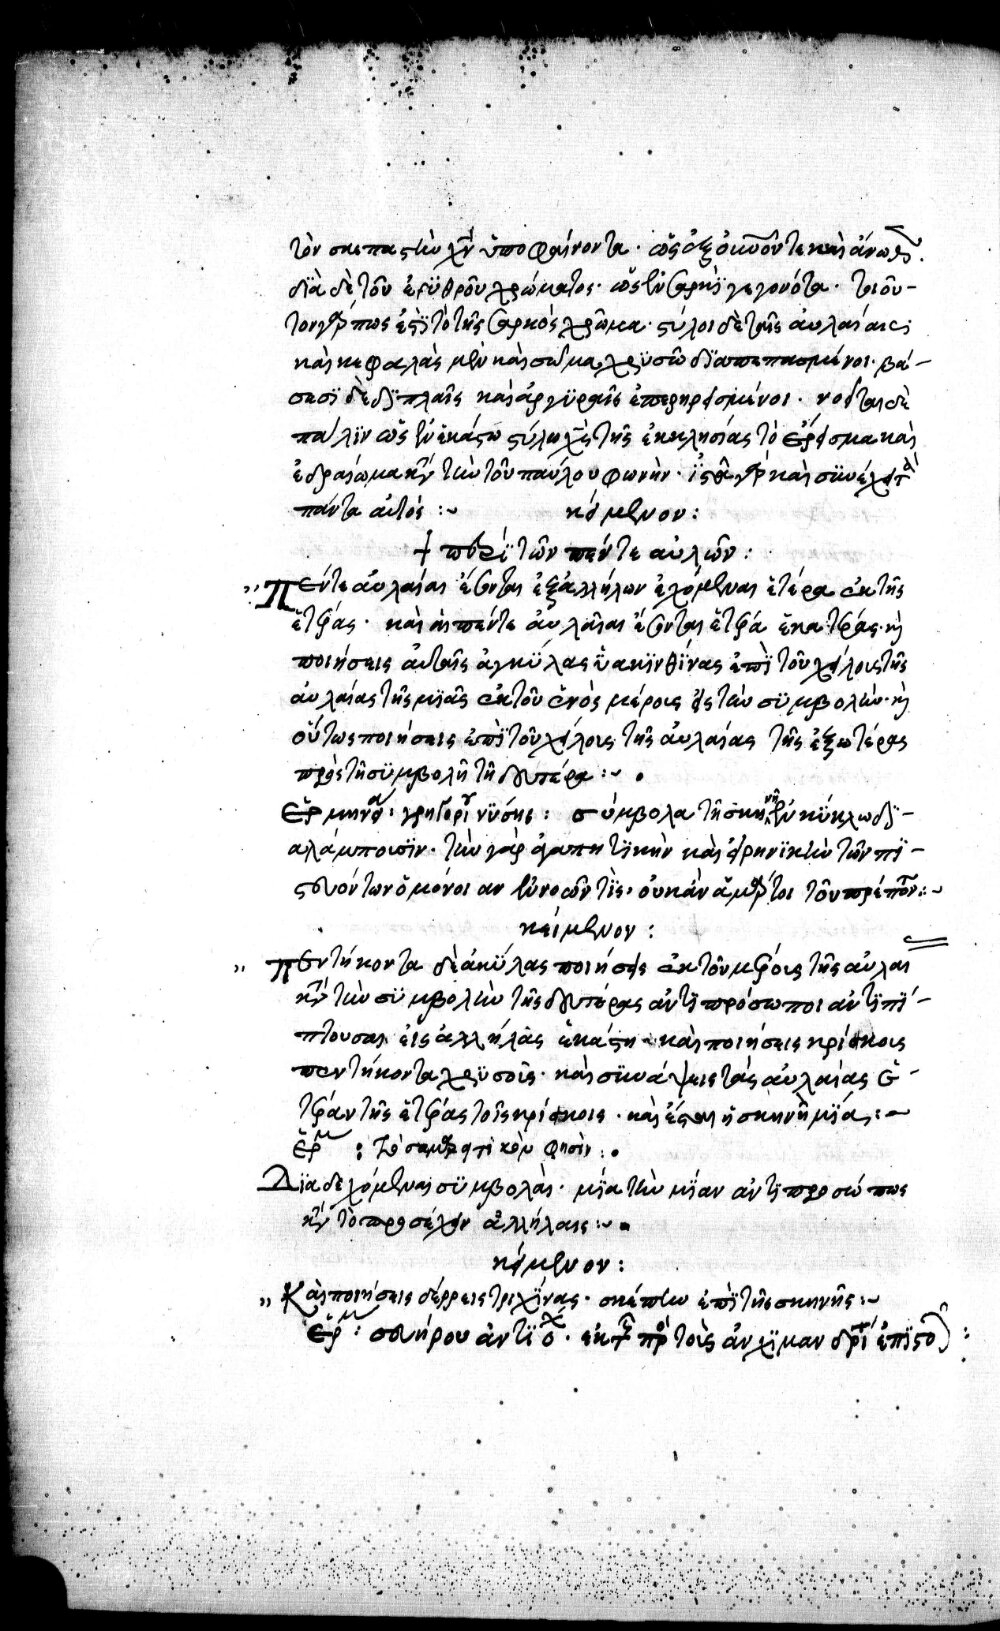 τὸν σκεπαστὴν χν ὑποφαίνοντα · ὡς ἐξ οὐνοῦ τε καὶ ἄνωθεν.
διὰ δὲ τοῦ ἐρυθροῦ χρώματος · ὡς ἐν σαρκὶ γεγονότα · τιοῦ-
τον γάρ πως ἐστὶ τὸ τῆς σαρκὸς χρῶμα · στύλοι δὲ ταῖς αὐλαίαις
καὶ κεφαλὰς μὲν καὶ σῶμα χρυσῶ διαπεπασμένοι · βά-
σεσι δὲ διπλαῖς καὶ ἀργυραῖς ἐπερηρεισμένοι · νοεῖται δὲ
πάλιν ὡς ἐν ἑκάστω στύλω χς τῆς ἐκκλησίας τὸ ἔρεισμα καὶ
ἑδραίωμα κατὰ τὴν τοῦ παύλου φωνὴν · ἵστησι γὰρ καὶ συνέχει τὰ
πάντα αὐτός :~ κείμενον :
+ περὶ τῶν πέντε αὐλῶν :
Πέντε αὐλαίαι ἔσονται ἐξ ἀλλήλων ἐχόμεναι ἑτέρα ἐκ τῆς
ἑτέρας · καὶ αἱ πέντε αὐλαίαι ἔσονται ἑτέρα ἑκατέρας · καὶ
ποιήσεις αὐταῖς ἀγκύλας ὑακινθίνας ἐπὶ τοῦ χείλους τῆς
αὐλαίας τῆς μιᾶς ἐκ τοῦ ἑνὸς μέρους εἰς τὴν συμβολὴν · καὶ
οὕτως ποιήσεις ἐπὶ τοῦ χείλους τῆς αὐλαίας τῆς ἐξωτέρας
πρὸς τῆ συμβολῆ τῆ δευτέρα :~ •
Ἑρμηνεία · γρηγορίου νύσης : σύμβολα τῆ σκηνῆ ἐν κύκλω δι-
αλάμπουσιν · τὴν γὰρ ἀγαπητικὴν καὶ εἰρηνικὴν τῶν πι-
στευόντων ὁμόνοιαν ἐννοῶν τὶς · οὐκ ἂν ἁμάρτοι τοῦ πρέποντος :~
κείμενον :
πεντήκοντα δὲ ἀκύλας ποιήσεις ἐκ τοῦ μέρους τῆς αὐλαί
κατὰ τὴν συμβολὴν τῆς δευτέρας ἀντιπρόσωποι ἀντιπί-
πτουσαι εἰς ἀλλήλας ἑκάστη · καὶ ποιήσεις κρίκους
πεντήκοντα χρυσοῦς · καὶ συνάψεις τὰς αὐλαίας ἑ-
τέραν τῆς ἑτέρας τοῖς κρίκοις · καὶ ἔσται ἡ σκηνὴ μία :~
ἑρμ : τὸ σαμαρειτικὸν φησὶν : •
Διαδεχόμεναι συμβολὰι · μία τὴν μίαν ἀντιπροσώπως
κατὰ τὸ προσέχειν ἀλλήλαις :~ •
κείμενον :
Καὶ ποιήσεις δέρρεις τριχίνας · σκέπειν ἐπὶ τῆς σκηνῆς :~
ἑρμ : σευήρου ἀντιοχ · ἐκ τ πρὸ τοὺς ἀρχιμανδρι ἐπιστο :